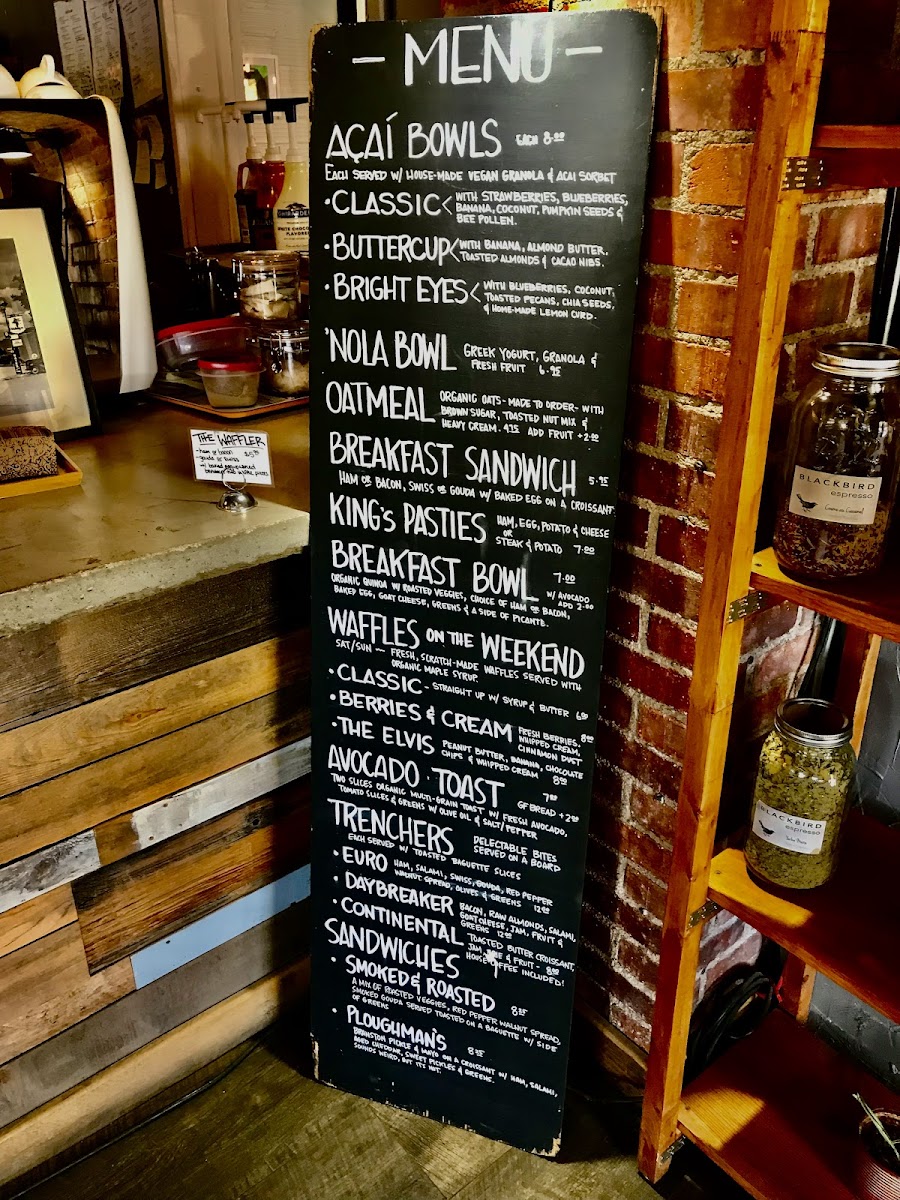 - MENU -
AÇAÍ BOWLS EACH 8.00
EACH SERVED W/ HOUSE-MADE VEGAN GRANOLA & ACAI SORBET
• CLASSIC < WITH STRAWBERRIES, BLUEBERRIES,
BANANA, COCONUT, PUMPKIN SEEDS &
BEE POLLEN.
• BUTTERCUP < WITH BANANA, ALMOND BUTTER,
TOASTED ALMONDS & CACAO NIBS.
• BRIGHT EYES < WITH BLUEBERRIES, COCONUT,
TOASTED PECANS, CHIA SEEDS,
& HOME-MADE LEMON CURD.
'NOLA BOWL GREEK YOGURT, GRANOLA &
FRESH FRUIT 6.95
OATMEAL ORGANIC OATS - MADE TO ORDER - WITH
BROWN SUGAR, TOASTED NUT MIX &
HEAVY CREAM. 4.75 ADD FRUIT +2.00
BREAKFAST SANDWICH 5.95
HAM OR BACON, SWISS OR GOUDA W/ BAKED EGG ON A CROISSANT
KING'S PASTIES HAM, EGG, POTATO & CHEESE
OR
STEAK & POTATO 7.00
BREAKFAST BOWL 7.00
W/ AVOCADO
ADD 2.00
ORGANIC QUINOA W/ ROASTED VEGGIES, CHOICE OF HAM OR BACON,
BAKED EGG, GOAT CHEESE, GREENS & A SIDE OF PICANTE.
WAFFLES ON THE WEEKEND
SAT/SUN — FRESH, SCRATCH-MADE WAFFLES SERVED WITH
ORGANIC MAPLE SYRUP.
• CLASSIC - STRAIGHT UP W/ SYRUP & BUTTER
• BERRIES & CREAM FRESH BERRIES,
WHIPPED CREAM,
CINNAMON DUST
• THE ELVIS PEANUT BUTTER, BANANA, CHOCOLATE
CHIPS & WHIPPED CREAM
AVOCADO TOAST GF BREAD +2.00
TWO SLICES ORGANIC MULTI-GRAIN TOAST W/ FRESH AVOCADO,
TOMATO SLICES & GREENS W/ OLIVE OIL & SALT/PEPPER
TRENCHERS DELECTABLE BITES
SERVED ON A BOARD
EACH SERVED W/ TOASTED BAGUETTE SLICES
• EURO HAM, SALAMI, SWISS, GOUDA, RED PEPPER
WALNUT SPREAD, OLIVES & GREENS
• DAYBREAKER BACON, RAW ALMONDS, SALAMI,
GOAT CHEESE, JAM, FRUIT &
GREENS
• CONTINENTAL TOASTED BUTTER CROISSANT,
& FRUIT -
COFFEE INCLUDED!
SANDWICHES
• SMOKED & ROASTED
A MIX OF ROASTED VEGGIES, RED PEPPER WALNUT SPREAD,
SMOKED GOUDA SERVED TOASTED ON A BAGUETTE W/ SIDE
OF GREENS
• PLOUGHMAN'S
BRANSTON PICKLE & MAYO ON A CROISSANT W/ HAM, SALAMI,
AGED CHEDDAR, SWEET PICKLES & GREENS.
SOUNDS WEIRD, BUT ITS NOT.
THE WAFFLER
- ham or bacon
- gouda or swiss
BLACKBIRD
espresso
BLACKBIRD
espresso